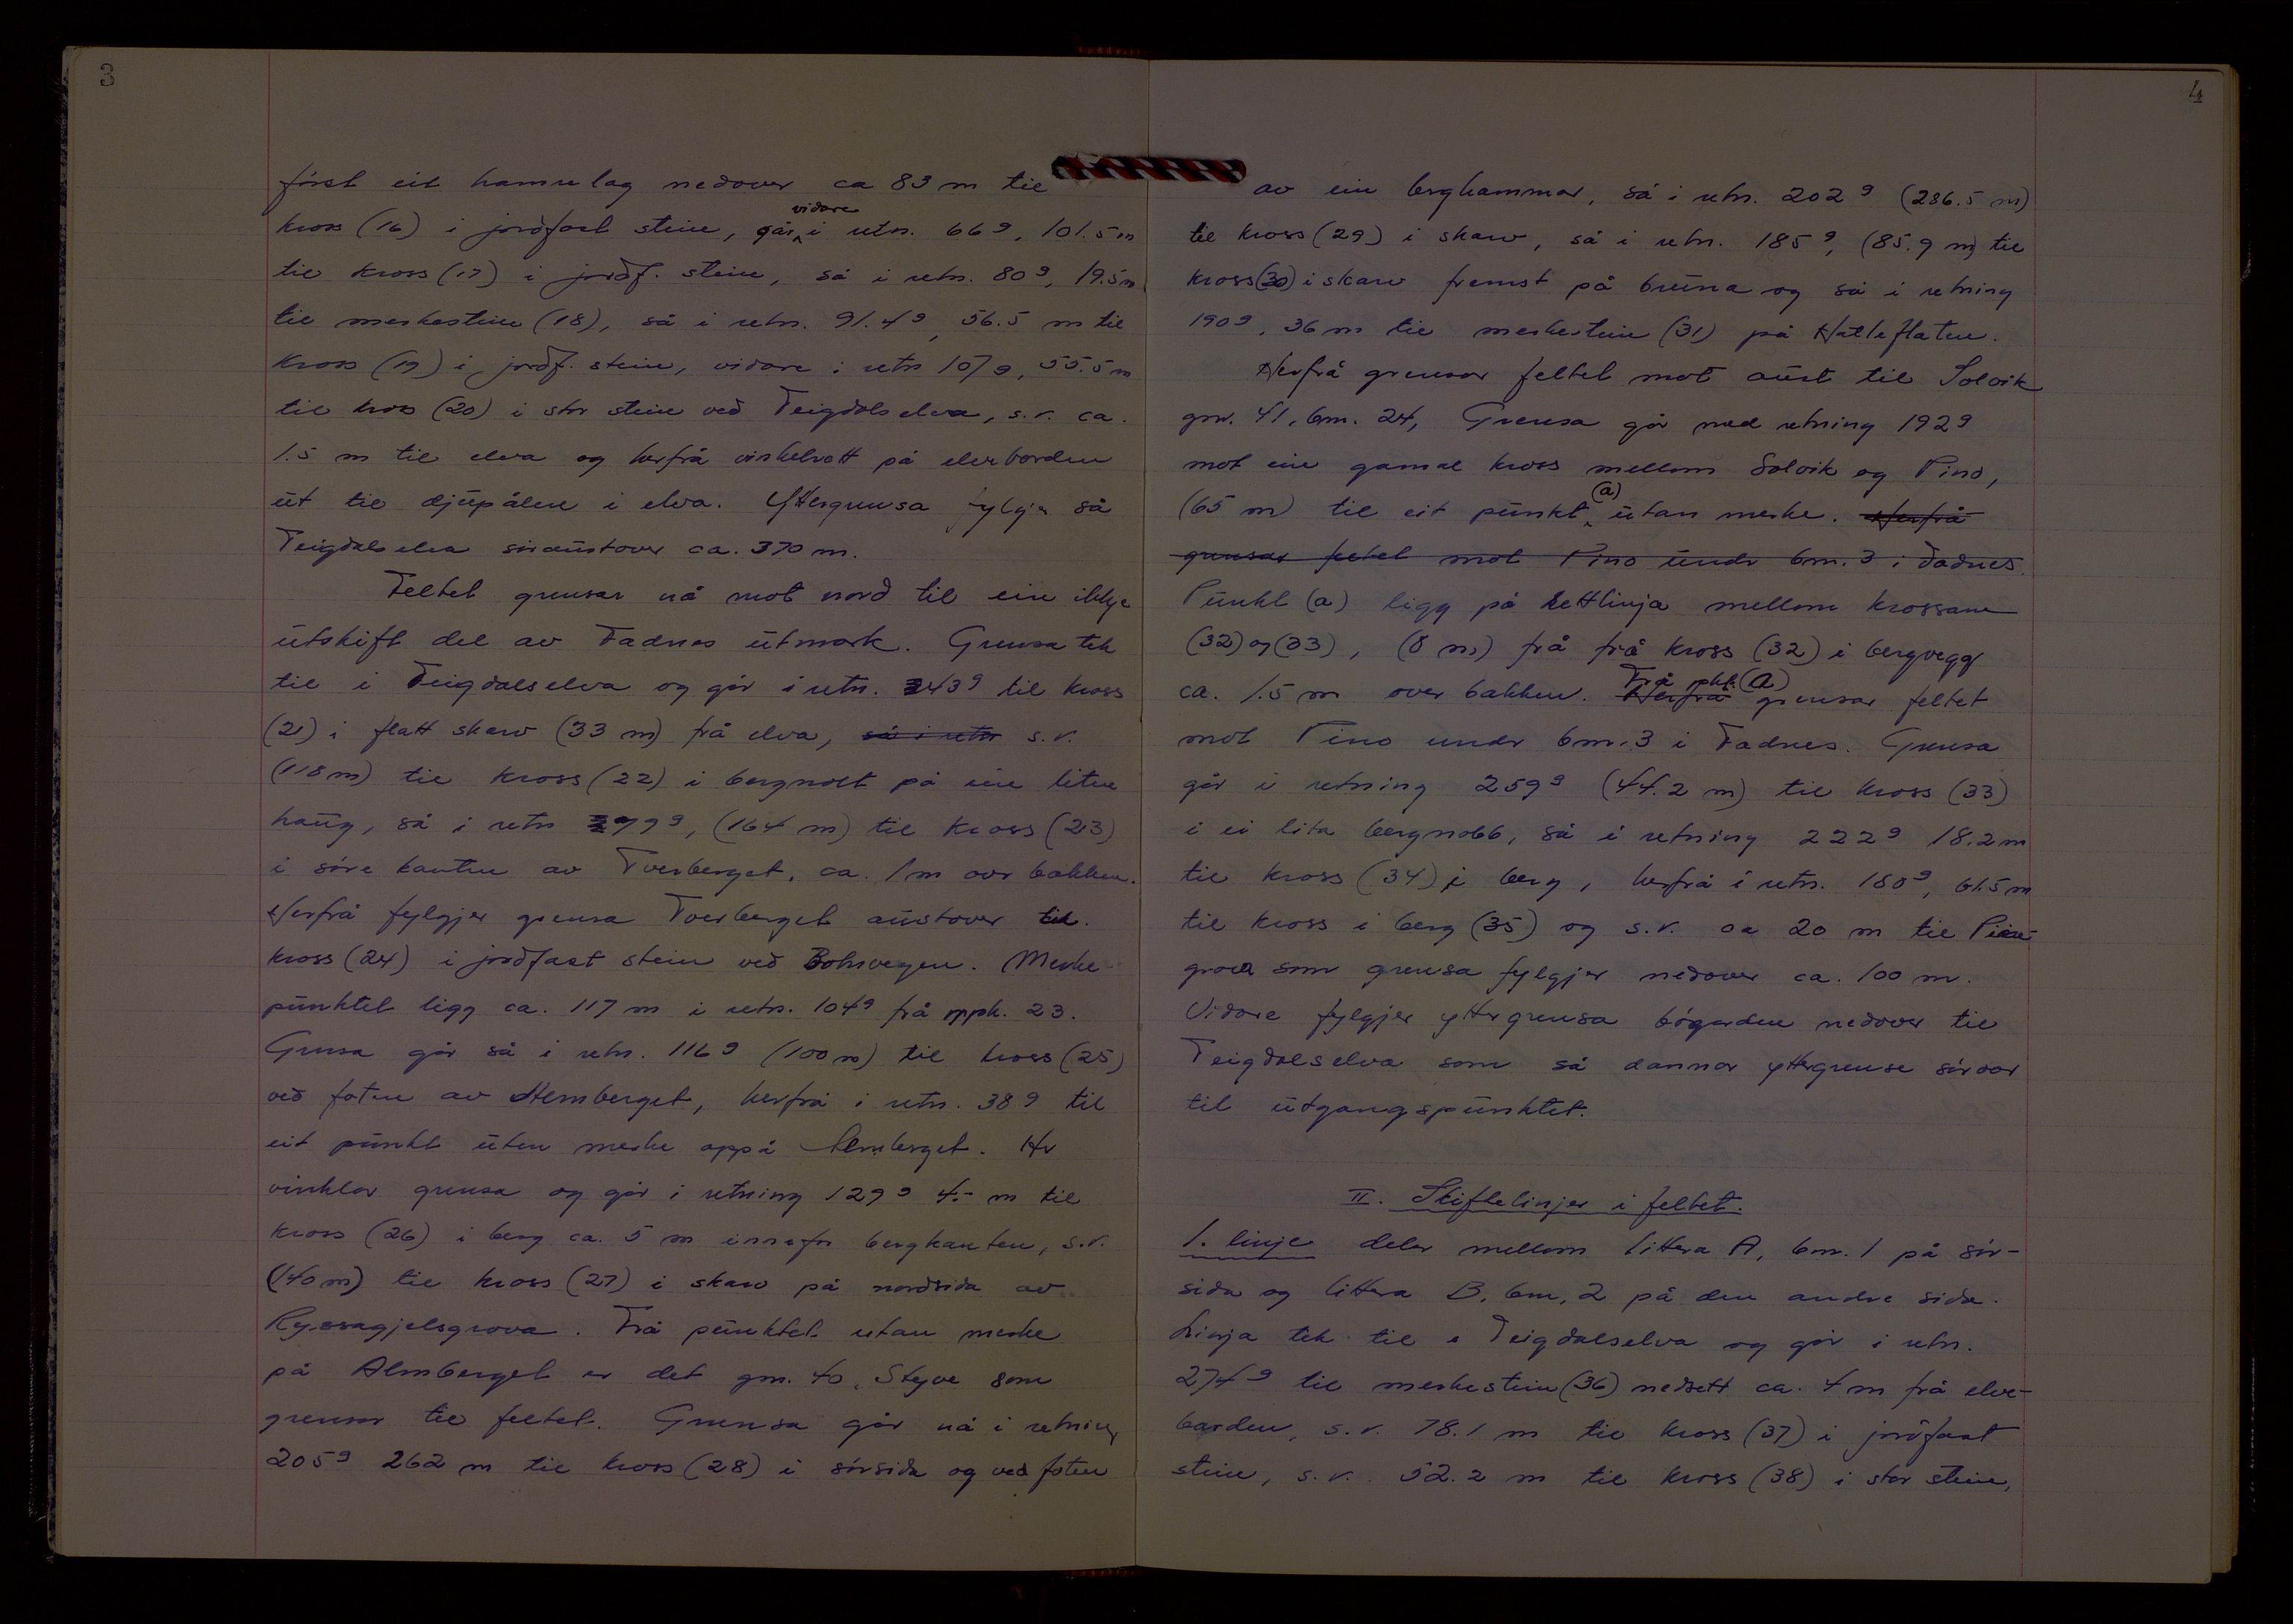 3
først eit hamrelag nedover ca 83 m til
kross (16) i jordfast stein, går vidare i retn. 66 g, 101.5 m
til kross (17) i jordf. stein, så i retn. 80 g, 19.5 m
til merkestein (18), så i retn. 91.4 g, 56.5 m til
kross (19) i jordf. stein, vidare i retn 107 g, 55.5 m
til kross (20) i stor stein ved Teigdalselva, s.r. ca.
1.5 m til elva og herfrå vinkelrett på elvebarden
ut til djupålen i elva. Yttergrensa fylgjer så
Teigdalselva søraustover ca. 370 m.
Feltet grensar nå mot nord til ein ikkje
utskift del av Fadnes utmark. Grensa tek
til i Teigdalselva og går i retn. 243 g til kross
(21) i flatt skarv (33 m) frå elva, så i retn s.r.
(118 m) til kross (22) i bergnobb på ein liten
haug, så i retn 99 g, (164 m) til kross (23)
i søre kanten av Tverberget, ca. 1 m over bakken.
Herfrå fylgjer grensa Tverberget austover til
kross (24) i jordfast stein ved Bolsvegen. Merke
punktet ligg ca. 117 m i retn. 104 g frå mpk. 23.
Grensa går så i retn. 116 g (100 m) til kross (25)
ved foten av Almberget, herfrå i retn. 38 g til
eit punkt uten merke oppå Almberget. Her
vinklar grensa og går i retning 129 g 4.- m til
kross (26) i berg ca. 5 m innafor bergkanten, s.r.
(140 m) til kross (27) i skarv på nordsida av
Ryssagjelsgrova. Frå punktet utan merke
på Almberget er det gnr. 40, Styve som
grensar til feltet. Grensa går nå i retning
205 g 262 m til kross (28) i sørsida og ved foten
4
av ein berghammar, så i retn. 202 g (286.5 m)
til kross (29) i skarv, så i retn. 185 g, (85.9 m) til
kross (30) i skarv fremst på bruna og så i retning
190 g, 36 m til merkestein (31) på Hatleflaten.
Herfrå grensar feltet mot aust til Solvik
gnr. 41, bnr. 24, Grensa går med retning 192 g
mot ein gamal kross mellom Solvik og Tino,
(65 m) til eit punkt (a) utan merke. Herfrå
grensar feltet mot Tino under bnr. 3 i Fadnes.
Punkt (a) ligg på rettlinja mellom krossane
(32) og (33), (8 m) frå frå kross (32) i bergvegg
ca. 1.5 m over bakken. Herfrå Frå pkt. (a) grensar feltet
mot Tino under bnr. 3 i Fadnes. Grensa
går i retning 259 g (44.2 m) til kross (33)
i ei lita bergnobb, så i retning 222 g 18.2 m
til kross (34) i berg, herfrå i retn. 180 g, 61.5 m
til kross i berg (35) og s.r. ca 20 m til
grova som grensa fylgjer nedover ca. 100 m.
Vidare fylgjer yttergrensa bøgarden nedover til
Teigdalselva som så dannar yttergrense sørover
til utgangspunktet.
II. Skiftelinjer i feltet.
1. linje deler mellom littera A, bnr. 1 på sør-
sida og littera B, bnr. 2 på den andre sida.
Linja tek til i Teigdalselva og går i retn.
274 g til merkestein (36) nedsett ca. 4 m frå elve-
barden, s.r. 78.1 m til kross (37) i jordfast
stein, s.r. 52.2 m til kross (38) i stor stein,